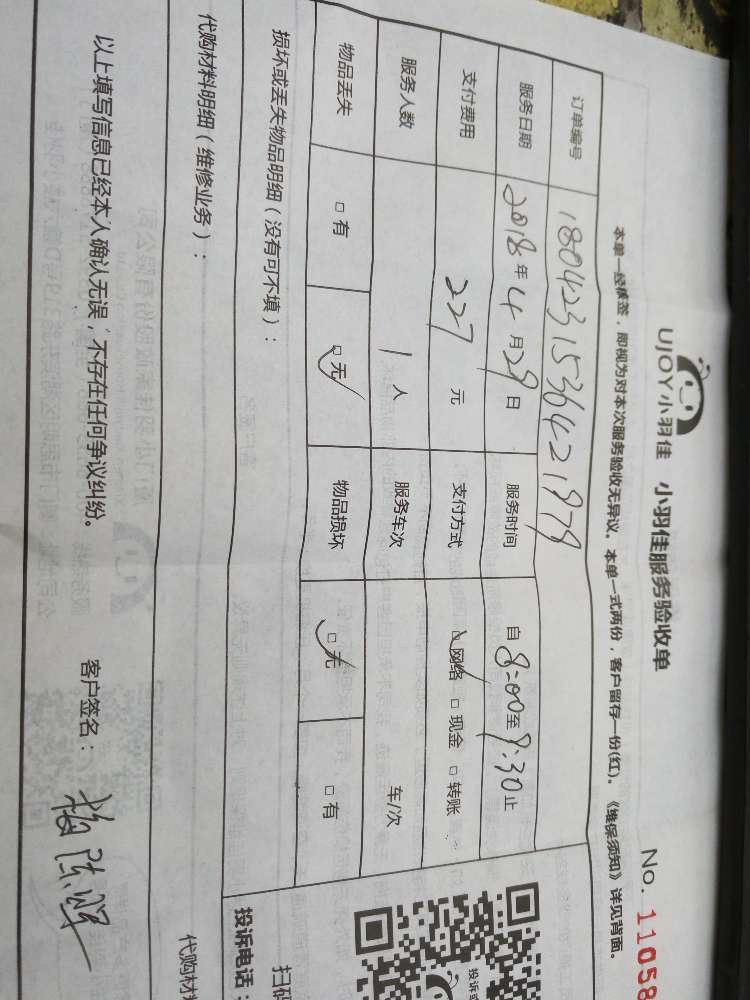 UJOY小羽佳 小羽佳服务验收单 No. 11058
本单一经核签，即视为对本次服务验收无异议。本单一式两份，客户留存一份(红)。《维保须知》详见背面。
订单编号 1804231536421979
服务日期 2018年4月29日 服务时间 自8:00至9:30止
支付费用 227元 支付方式 □网络 □现金 □转账
服务人数 1人 服务车次 车/次
物品丢失 □有 □无 物品损坏 □无 □有
损坏或丢失物品明细（没有可不填）：
投诉电话：
代购材料明细（维修业务）：
代购材料
以上填写信息已经本人确认无误，不存在任何争议纠纷。 客户签名：